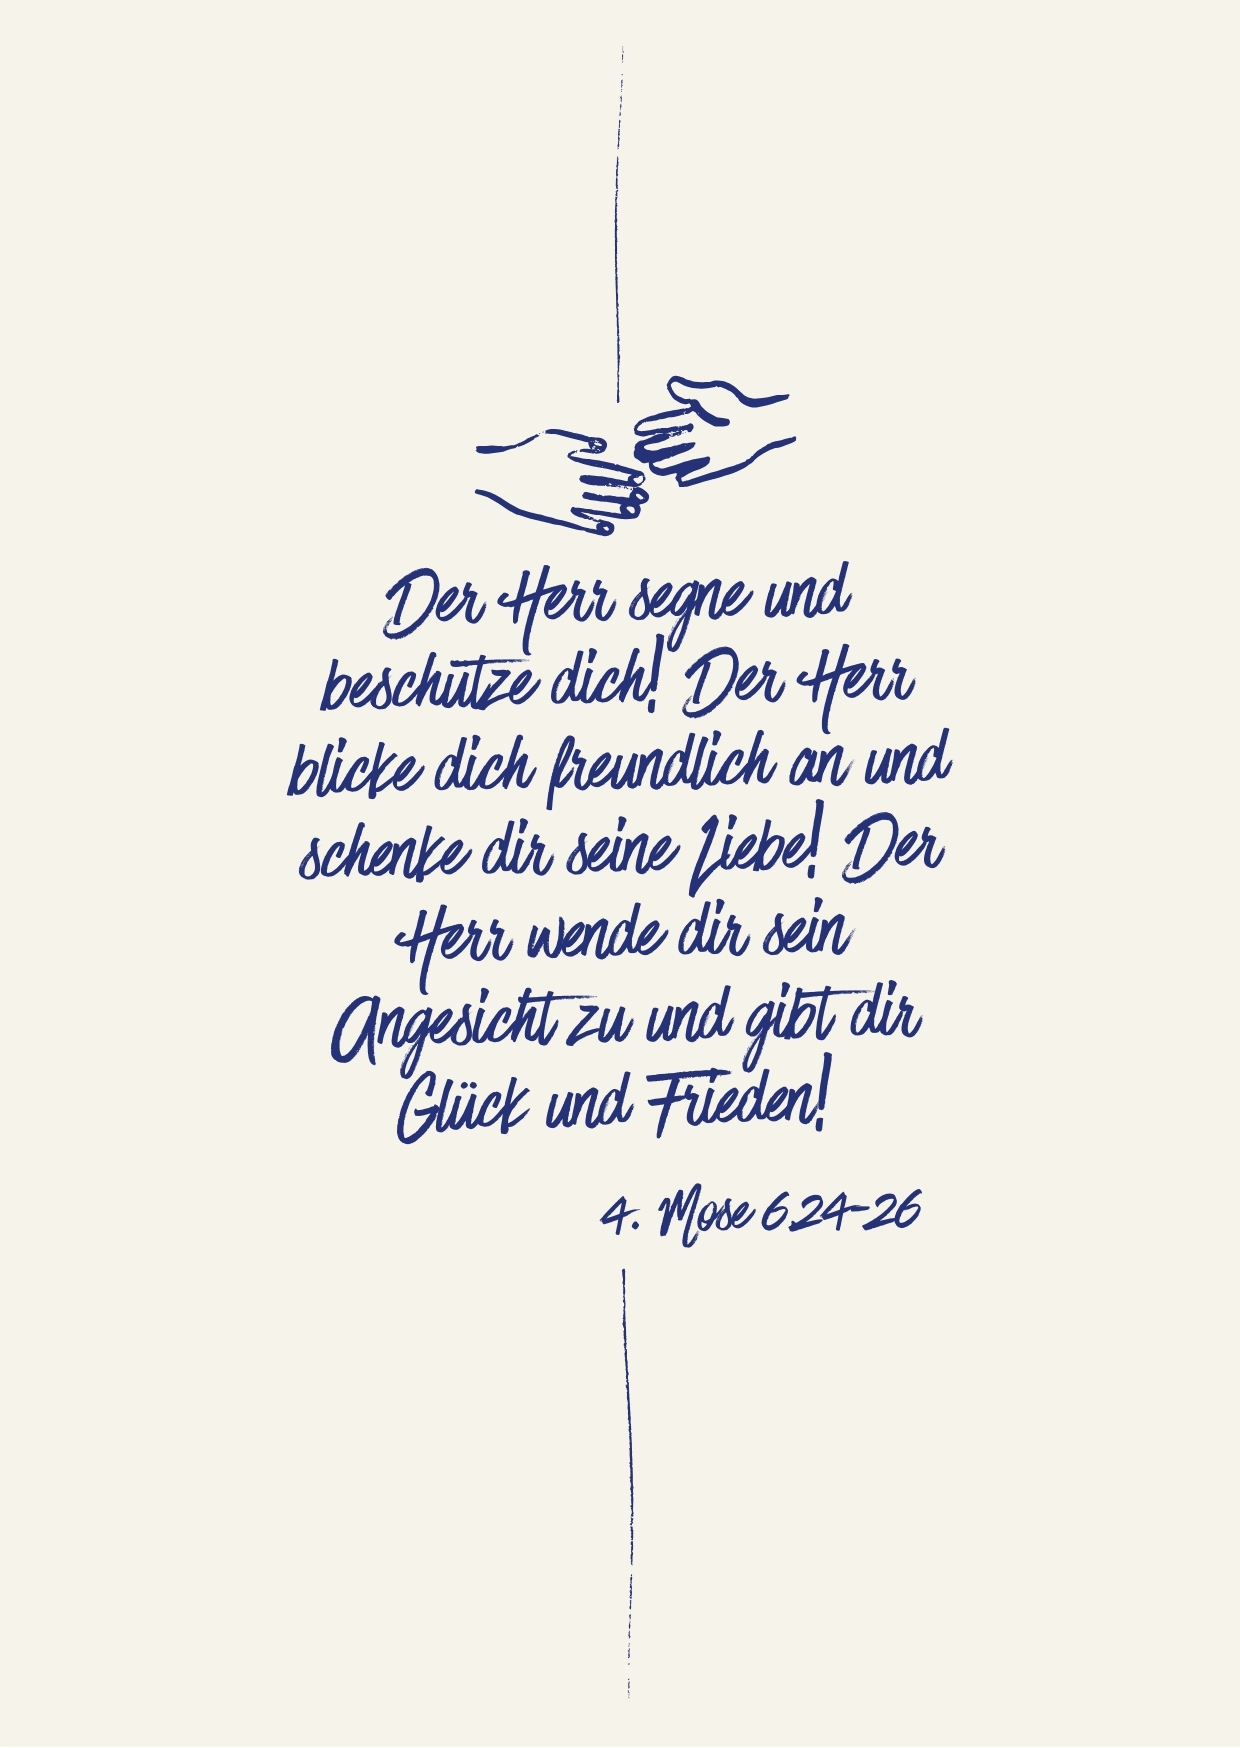 Der Herr segne und
beschütze dich! Der Herr
blicke dich freundlich an und
schenke dir seine Liebe! Der
Herr wende dir sein
Angesicht zu und gibt dir
Glück und Frieden!
4. Mose 6.24-26